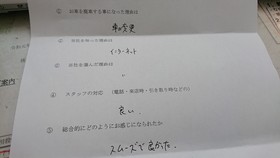 ① お車を鑑定する事になった理由は
車の変更
② 当社を知った理由は
インターネット
③ 当社を選んだ理由は
〃
④ スタッフの対応（電話・来店時・引き取り時など）
良い
⑤ 総合的にどのようにお感じになられたか
スムーズで良かった。